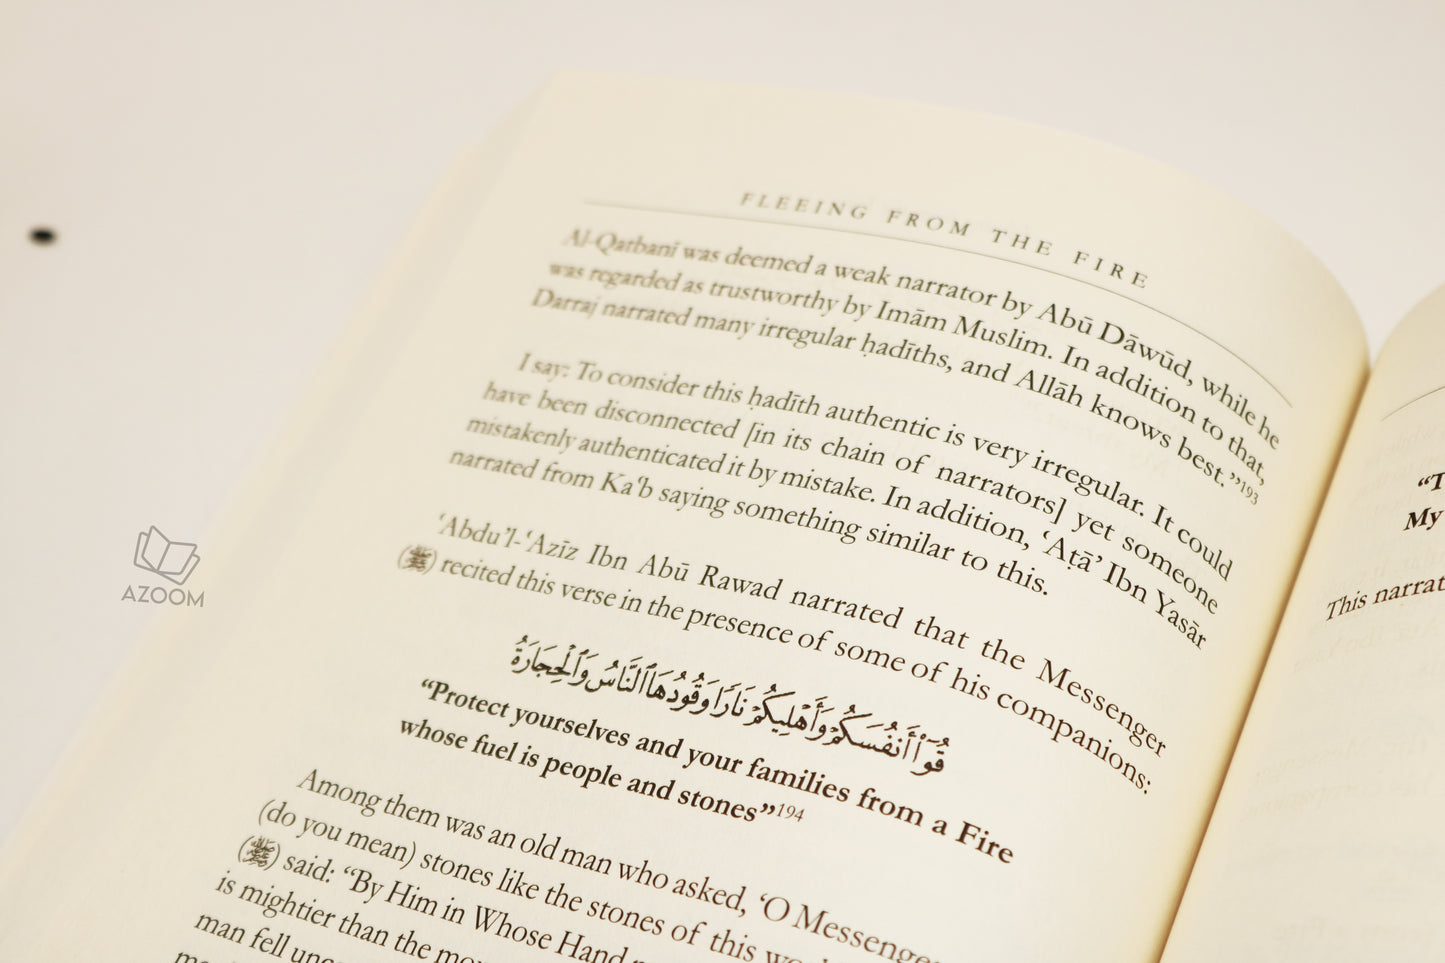 FLEEING FROM THE FIRE
Al-Qatbanī was deemed a weak narrator by Abū Dāwūd, while he
was regarded as trustworthy by Imām Muslim. In addition to that,
Darraj narrated many irregular ḥadīths, and Allāh knows best.”193
I say: To consider this ḥadīth authentic is very irregular. It could
have been disconnected [in its chain of narrators] yet someone
mistakenly authenticated it by mistake. In addition, ‘Aṭā’ Ibn Yasār
narrated from Ka‘b saying something similar to this.
‘Abdu’l-‘Azīz Ibn Abū Rawad narrated that the Messenger
(ﷺ) recited this verse in the presence of some of his companions:
قُوٓاْ أَنفُسَكُمْ وَأَهْلِيكُمْ نَارًا وَقُودُهَا ٱلنَّاسُ وَٱلْحِجَارَةُ
“Protect yourselves and your families from a Fire
whose fuel is people and stones”194
Among them was an old man who asked, ‘O Messenger
(do you mean) stones like the stones of this
(ﷺ) said: “By Him in Whose Hand
is mightier than the
man fell
“T
My
This narrat
AZOOM